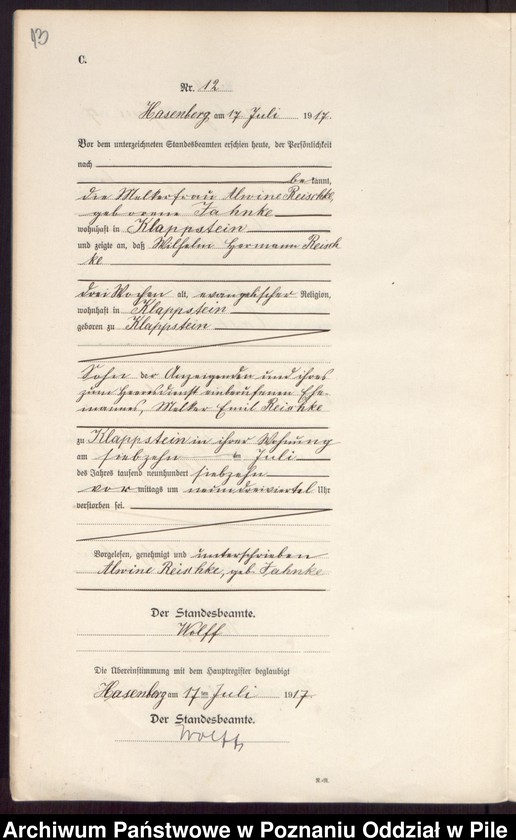 13
C.
Nr. 12
Hasenberg, am 17 Juli 1917.
Vor dem unterzeichneten Standesbeamten erschien heute, der Persönlichkeit
nach
be kannt,
die Melkerfrau Alwine Reischke,
geborene Jahnke
wohnhaft in Klappstein
und zeigte an, daß Wilhelm Hermann Reisch
ke
drei Wochen alt, evangelischer Religion,
wohnhaft in Klappstein
geboren zu Klappstein
Sohn der Anzeigenden und ihres
zum Heeresdienst einberufenen Ehe-
mannes, Melker Emil Reischke
zu Klappstein in ihrer Wohnung
am siebzehn ten Juli
des Jahres tausend neunhundert siebzehn
vor mittags um neundreiviertel Uhr
verstorben sei.
Vorgelesen, genehmigt und unterschrieben
Alwine Reischke, geb. Jahnke
Der Standesbeamte.
Wolff
Die Übereinstimmung mit dem Hauptregister beglaubigt
Hasenberg am 17 ten Juli 1917.
Der Standesbeamte.
Wolff
Archiwum Państwowe w Poznaniu Oddział w Pile